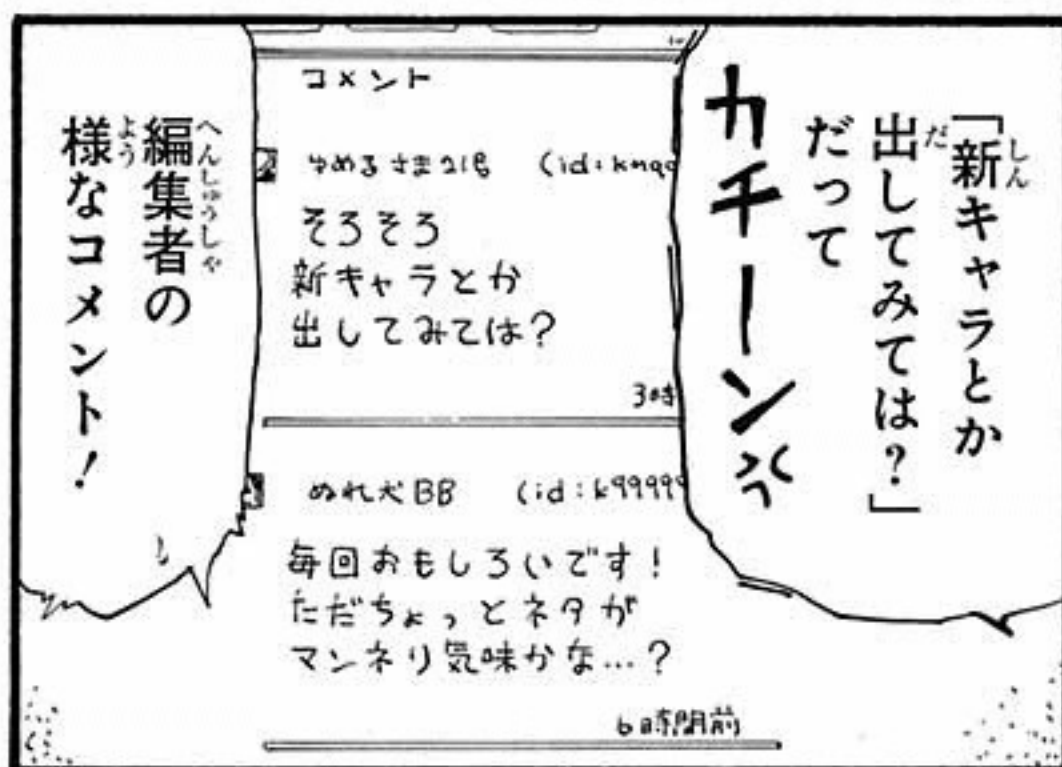 「新キャラとか
出してみては?」
だって
カチーン
コメント
ゆめるさま21号 (id:kmq9
そろそろ
新キャラとか
出してみては?
3時
ぬれ犬BB (id:k99999
毎回おもしろいです!
ただちょっとネタが
マンネリ気味かな…?
6時間前
編集者の
様なコメント!